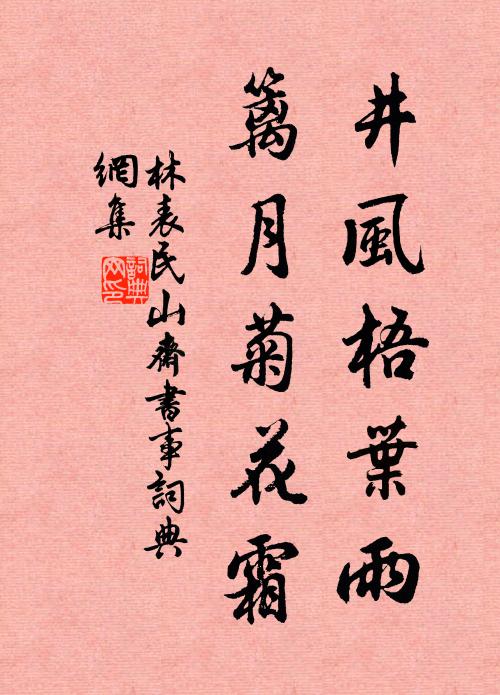 井風梧葉雨
籬月菊花霜
林表民山齋書事詞典
網集
詞典
网印